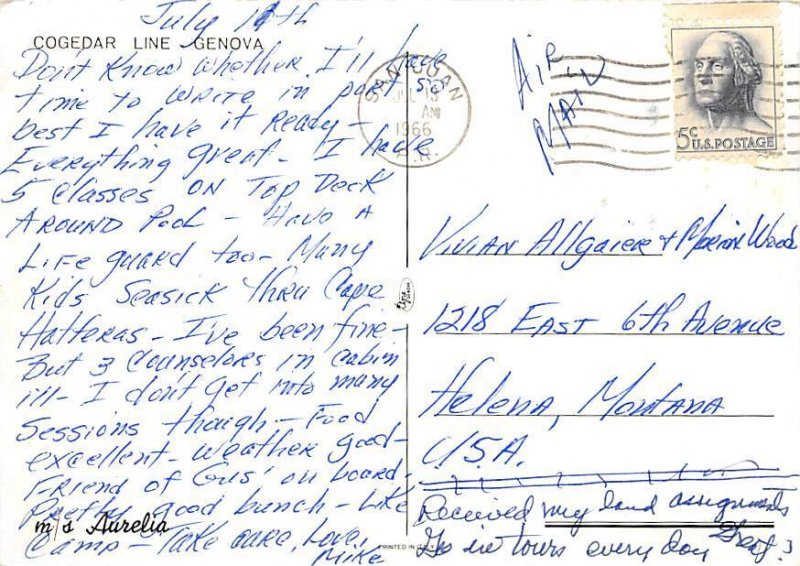 July 11th
COGEDAR LINE GENOVA
Don't Know whether I'll have
time to write in port so
best I have it Ready -
Everything great - I have
5 classes ON Top Deck
AROUND Pool - Have A
Life guard too - Many
Kids Seasick thru Cape
Hatteras - I've been fine -
But 3 Counselors in Cabin
ill - I don't get into many
Sessions though - Food
excellent - weather good -
Friend of Gus' on board -
Pretty good bunch - Like
m/s Aurelia
Camp - Take care, Love,
Mike
SAN JUAN
JUL 13
AM
1966
P.R.
AIR
MAIL
5c U.S. POSTAGE
Vivian Allgaier + Marion Wood
1218 EAST 6th Avenue
Helena, Montana
U.S.A.
Received my land assignments
Go in tours every day
PRINTED IN ITALY